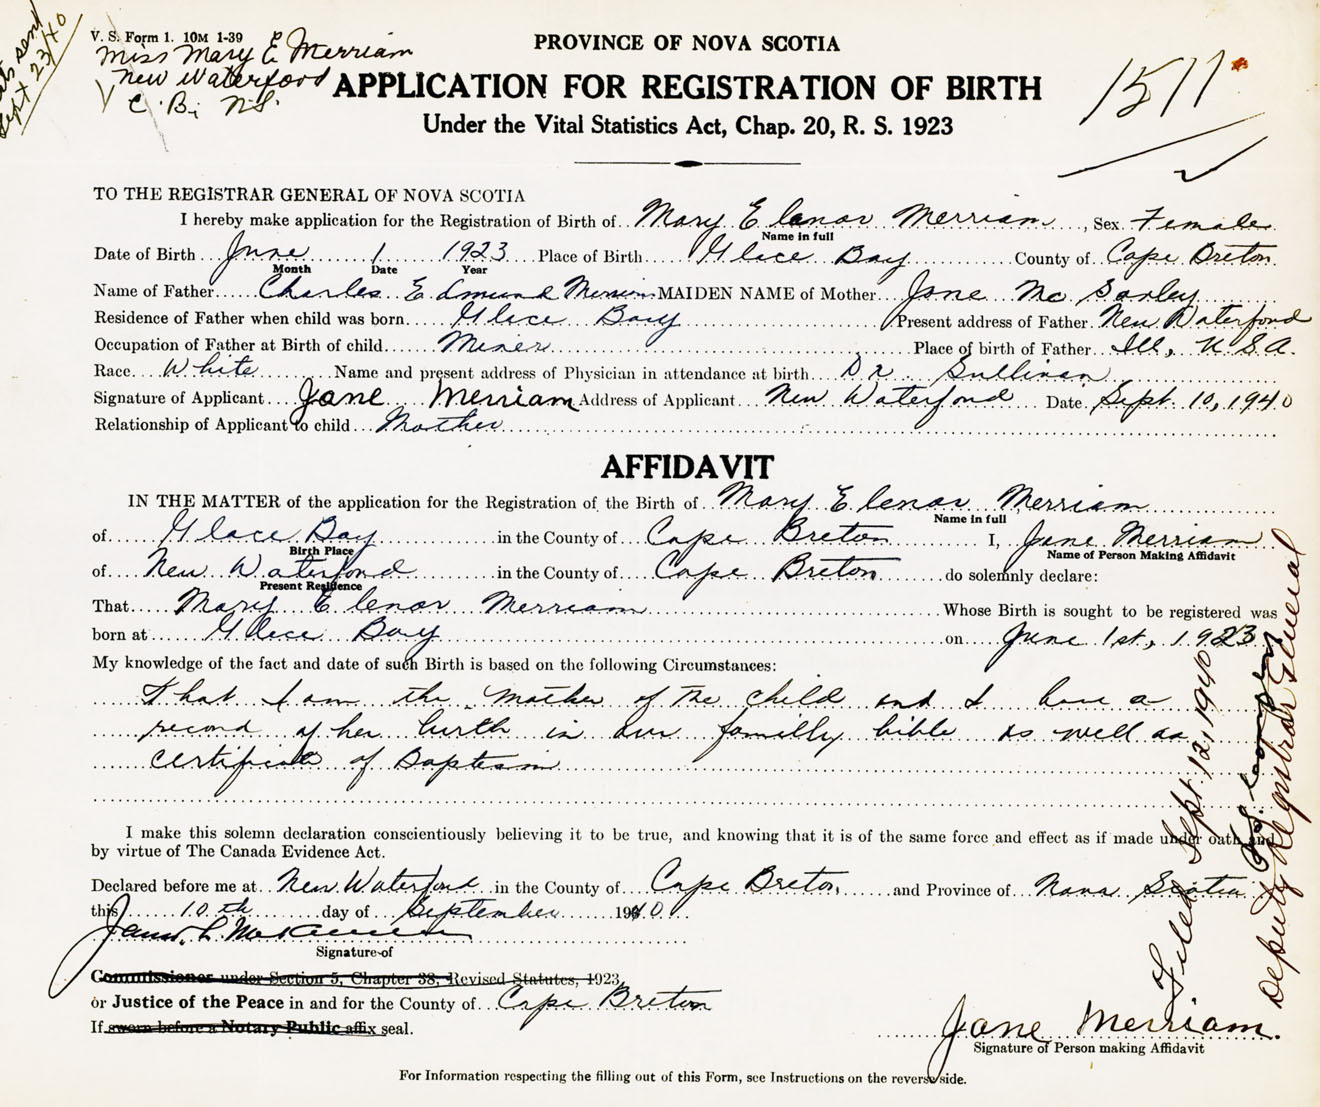 V. S. Form 1. 10M 1-39
Miss Mary E Merriam
New Waterford
C. B. N.S.
sent
Sept 23/40
1511
PROVINCE OF NOVA SCOTIA
APPLICATION FOR REGISTRATION OF BIRTH
Under the Vital Statistics Act, Chap. 20, R. S. 1923
TO THE REGISTRAR GENERAL OF NOVA SCOTIA
I hereby make application for the Registration of Birth of Mary Elenor Merriam, Sex Female
Name in full
Date of Birth June 1 1923 Place of Birth Glace Bay County of Cape Breton
Month Date Year
Name of Father Charles Edmund Merriam MAIDEN NAME of Mother Jane Mc Sorley
Residence of Father when child was born Glace Bay Present address of Father New Waterford
Occupation of Father at Birth of child Miner Place of birth of Father Ill, U.S.A.
Race White Name and present address of Physician in attendance at birth Dr Sullivan
Signature of Applicant Jane Merriam Address of Applicant New Waterford Date Sept. 10, 1940
Relationship of Applicant to child Mother
AFFIDAVIT
IN THE MATTER of the application for the Registration of the Birth of Mary Elenor Merriam
Name in full
of Glace Bay in the County of Cape Breton I, Jane Merriam
Birth Place Name of Person Making Affidavit
of New Waterford in the County of Cape Breton do solemnly declare:
Present Residence
That Mary Elenor Merriam Whose Birth is sought to be registered was
born at Glace Bay on June 1st, 1923
My knowledge of the fact and date of such Birth is based on the following Circumstances:
That I am the Mother of the child and I have a
record of her birth in our familly bible as well as
certificate of Baptism
I make this solemn declaration conscientiously believing it to be true, and knowing that it is of the same force and effect as if made under oath and
by virtue of The Canada Evidence Act.
Declared before me at New Waterford in the County of Cape Breton, and Province of Nova Scotia
this 10th day of September 1940
Signature of
Commissioner under Section 5, Chapter 38, Revised Statutes, 1923,
or Justice of the Peace in and for the County of Cape Breton
If sworn before a Notary Public affix seal.
Jane Merriam.
Signature of Person making Affidavit
For Information respecting the filling out of this Form, see Instructions on the reverse side.
Filed Sept. 12, 1940
Deputy Registrar General